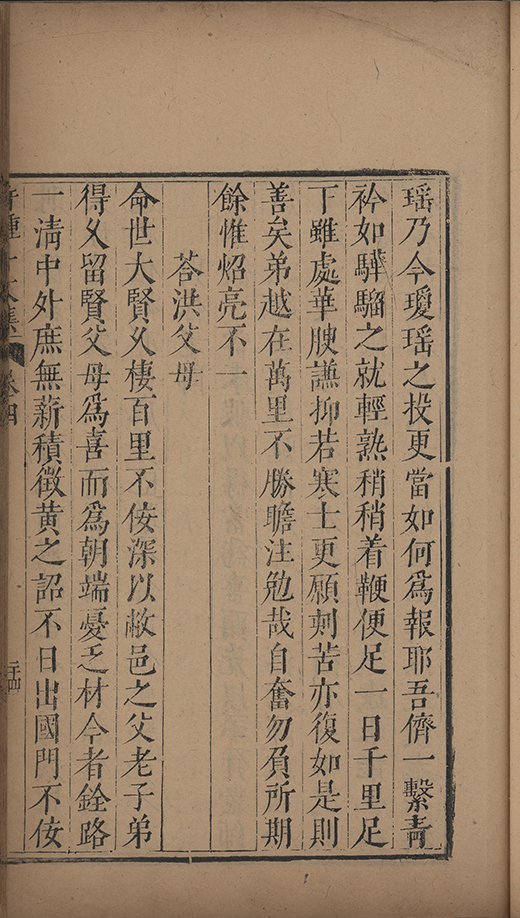 瑶乃今瓊瑶之投更當如何爲報耶吾儕一繫青
衿如驊騮之就輕熟稍稍着鞭便足一日千里足
下雖處華腴謙抑若寒士更願刺苦亦復如是則
善矣弟越在萬里不勝瞻注勉哉自奮勿負所期
餘惟炤亮不一
荅洪父母
命世大賢乆棲百里不佞深以敝邑之父老子弟
得乆留賢父母爲喜而爲朝端憂乏材今者銓路
一清中外庶無薪積徵黄之詔不日出國門不佞
文集 卷四